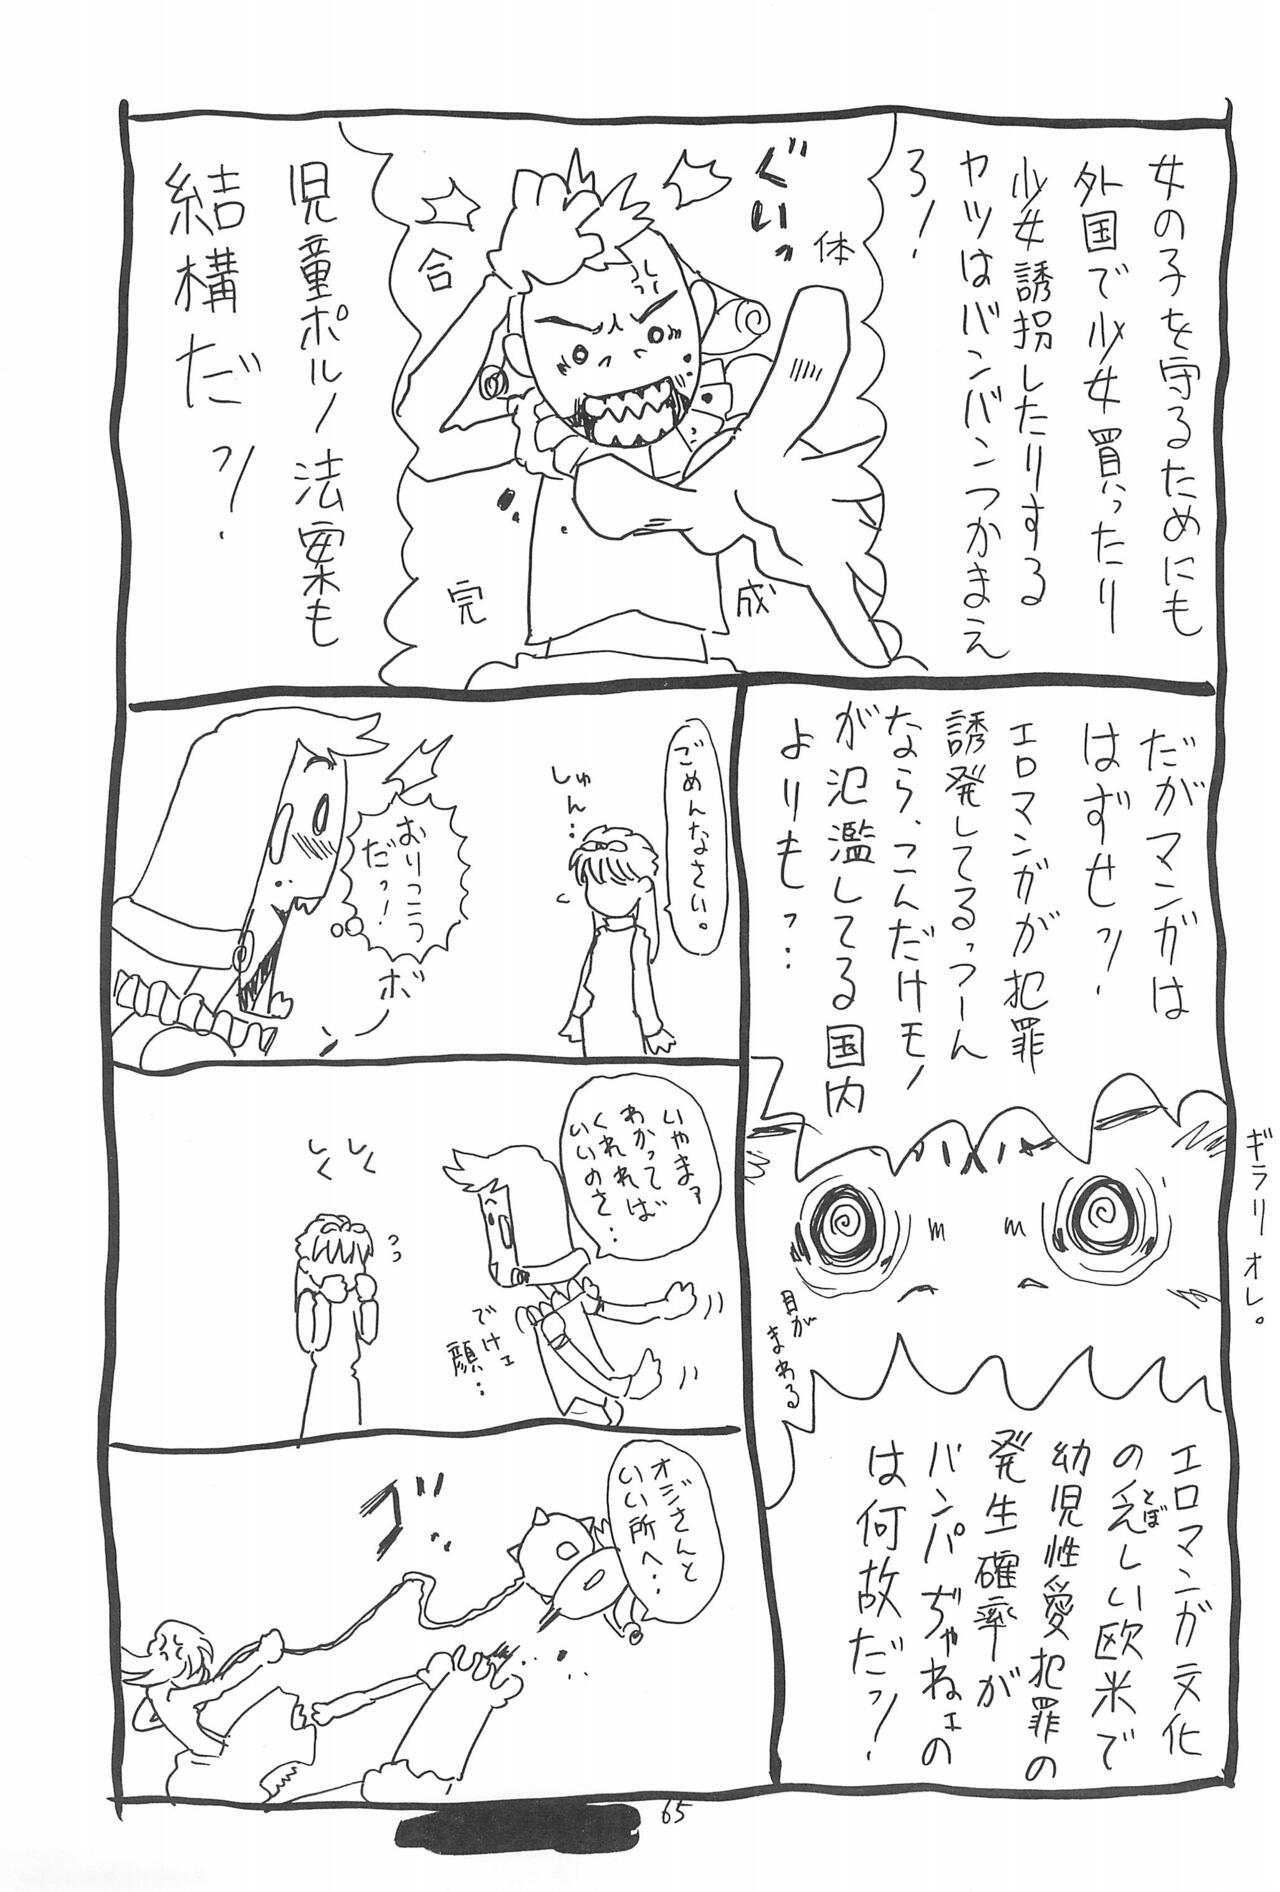 女の子を守るためにも
外国で少女買ったり
少女誘拐したりする
ヤツはバンバンつかまえ
ろ！
ぐいっ
合
体
完
成
児童ポルノ法案も
結構だっ！
だがマンガは
はずせっ！
エロマンガが犯罪
誘発してるっつーん
なら、こんだけモノ
が氾濫してる国内
よりもっ‥
ギラリオレ。
目が
まわる
エロマンガ文化
の乏しい欧米で
とぼ
幼児性愛犯罪の
発生確率が
バンパぢゃねェの
は何故だっ！
ごめんなさい。
しゅん‥
おりこう
だっ！
ボーン
いやまァ
わかって
くれれば
いいのさ‥
でけェ
顔‥
しくしく
オジさんと
いい所へ‥
ブン
65